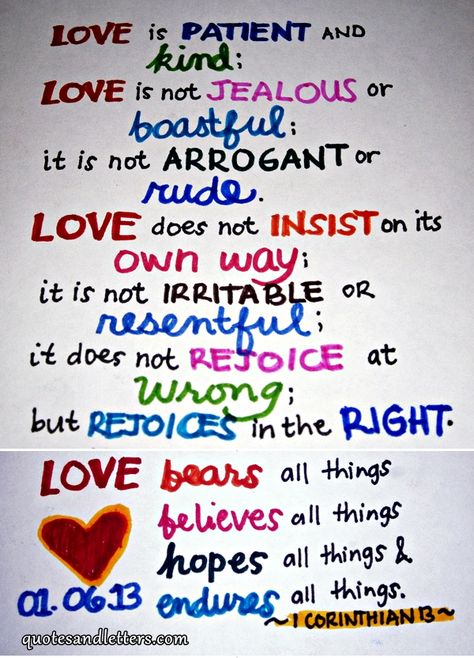 LOVE is PATIENT AND
kind;
LOVE is not JEALOUS or
boastful;
it is not ARROGANT or
rude.
LOVE does not INSIST on its
own way;
it is not IRRITABLE OR
resentful;
it does not REJOICE at
wrong;
but REJOICES in the RIGHT.
LOVE bears all things
believes all things
hopes all things &
01.06.13 endures all things.
~1 CORINTHIAN 13~
quotesandletters.com